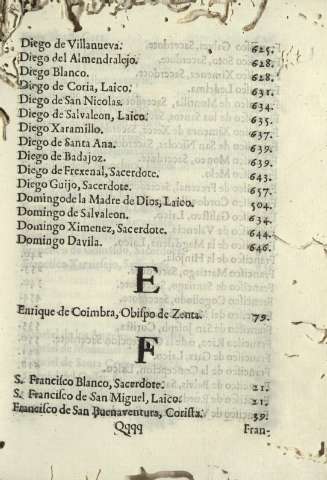 Diego de Villanueva. 625.
Diego del Almendralejo. 628.
Diego Blanco. 628.
Diego de Coria, Laico. 631.
Diego de San Nicolas. 634.
Diego de Salvaleon, Laico. 635.
Diego Xaramillo. 637.
Diego de Santa Ana. 639.
Diego de Badajoz. 639.
Diego de Frexenal, Sacerdote. 643.
Diego Guijo, Sacerdote. 657.
Domingo de la Madre de Dios, Laico. 504.
Domingo de Salvaleon. 634.
Domingo Ximenez, Sacerdote. 644.
Domingo Davila. 646.
E
Enrique de Coimbra, Obispo de Zenta. 79.
F
S. Francisco Blanco, Sacerdote. 21.
S. Francisco de San Miguel, Laico. 21.
Francisco de San Buenaventura, Corista. 39.
Qqqq Fran-